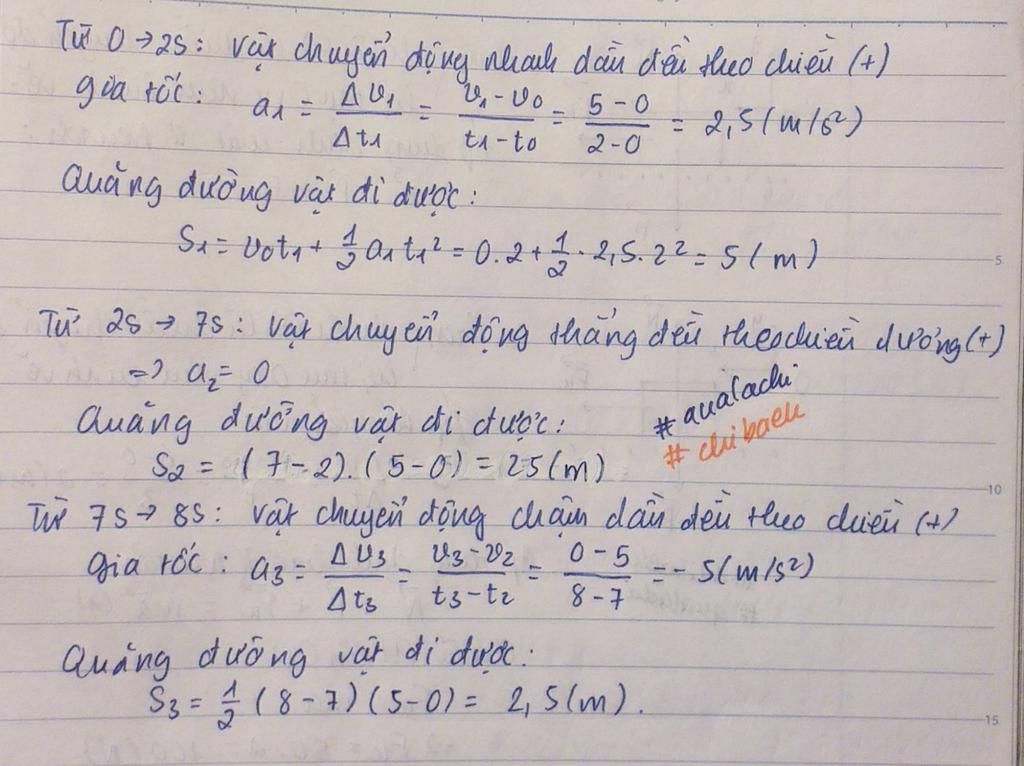 Từ 0 → 2s: vật chuyển động nhanh dần đều theo chiều (+)
gia tốc: a₁ = Δv₁/Δt₁ = (v₁ - v₀)/(t₁ - t₀) = (5 - 0)/(2 - 0) = 2,5 (m/s²)
Quãng đường vật đi được:
S₁ = v₀t₁ + 1/2 a₁t₁² = 0.2 + 1/2 . 2,5. 2² = 5 (m)
Từ 2s → 7s: vật chuyển động thẳng đều theo chiều dương (+)
=> a₂ = 0
Quãng đường vật đi được:
#aualachi
#chibaeu
S₂ = (7 - 2).(5 - 0) = 25 (m)
Từ 7s → 8s: vật chuyển động chậm dần đều theo chiều (+)
Gia tốc: a₃ = Δv₃/Δt₃ = (v₃ - v₂)/(t₃ - t₂) = (0 - 5)/(8 - 7) = - 5 (m/s²)
Quãng đường vật đi được:
S₃ = 1/2 (8 - 7)(5 - 0) = 2,5 (m).
5
10
15